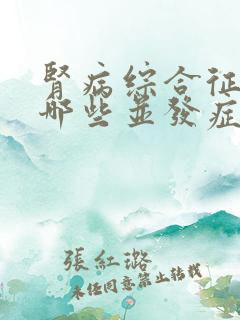 腎病綜合征
哪些並發症
張紅璐
未任同意禁止转载